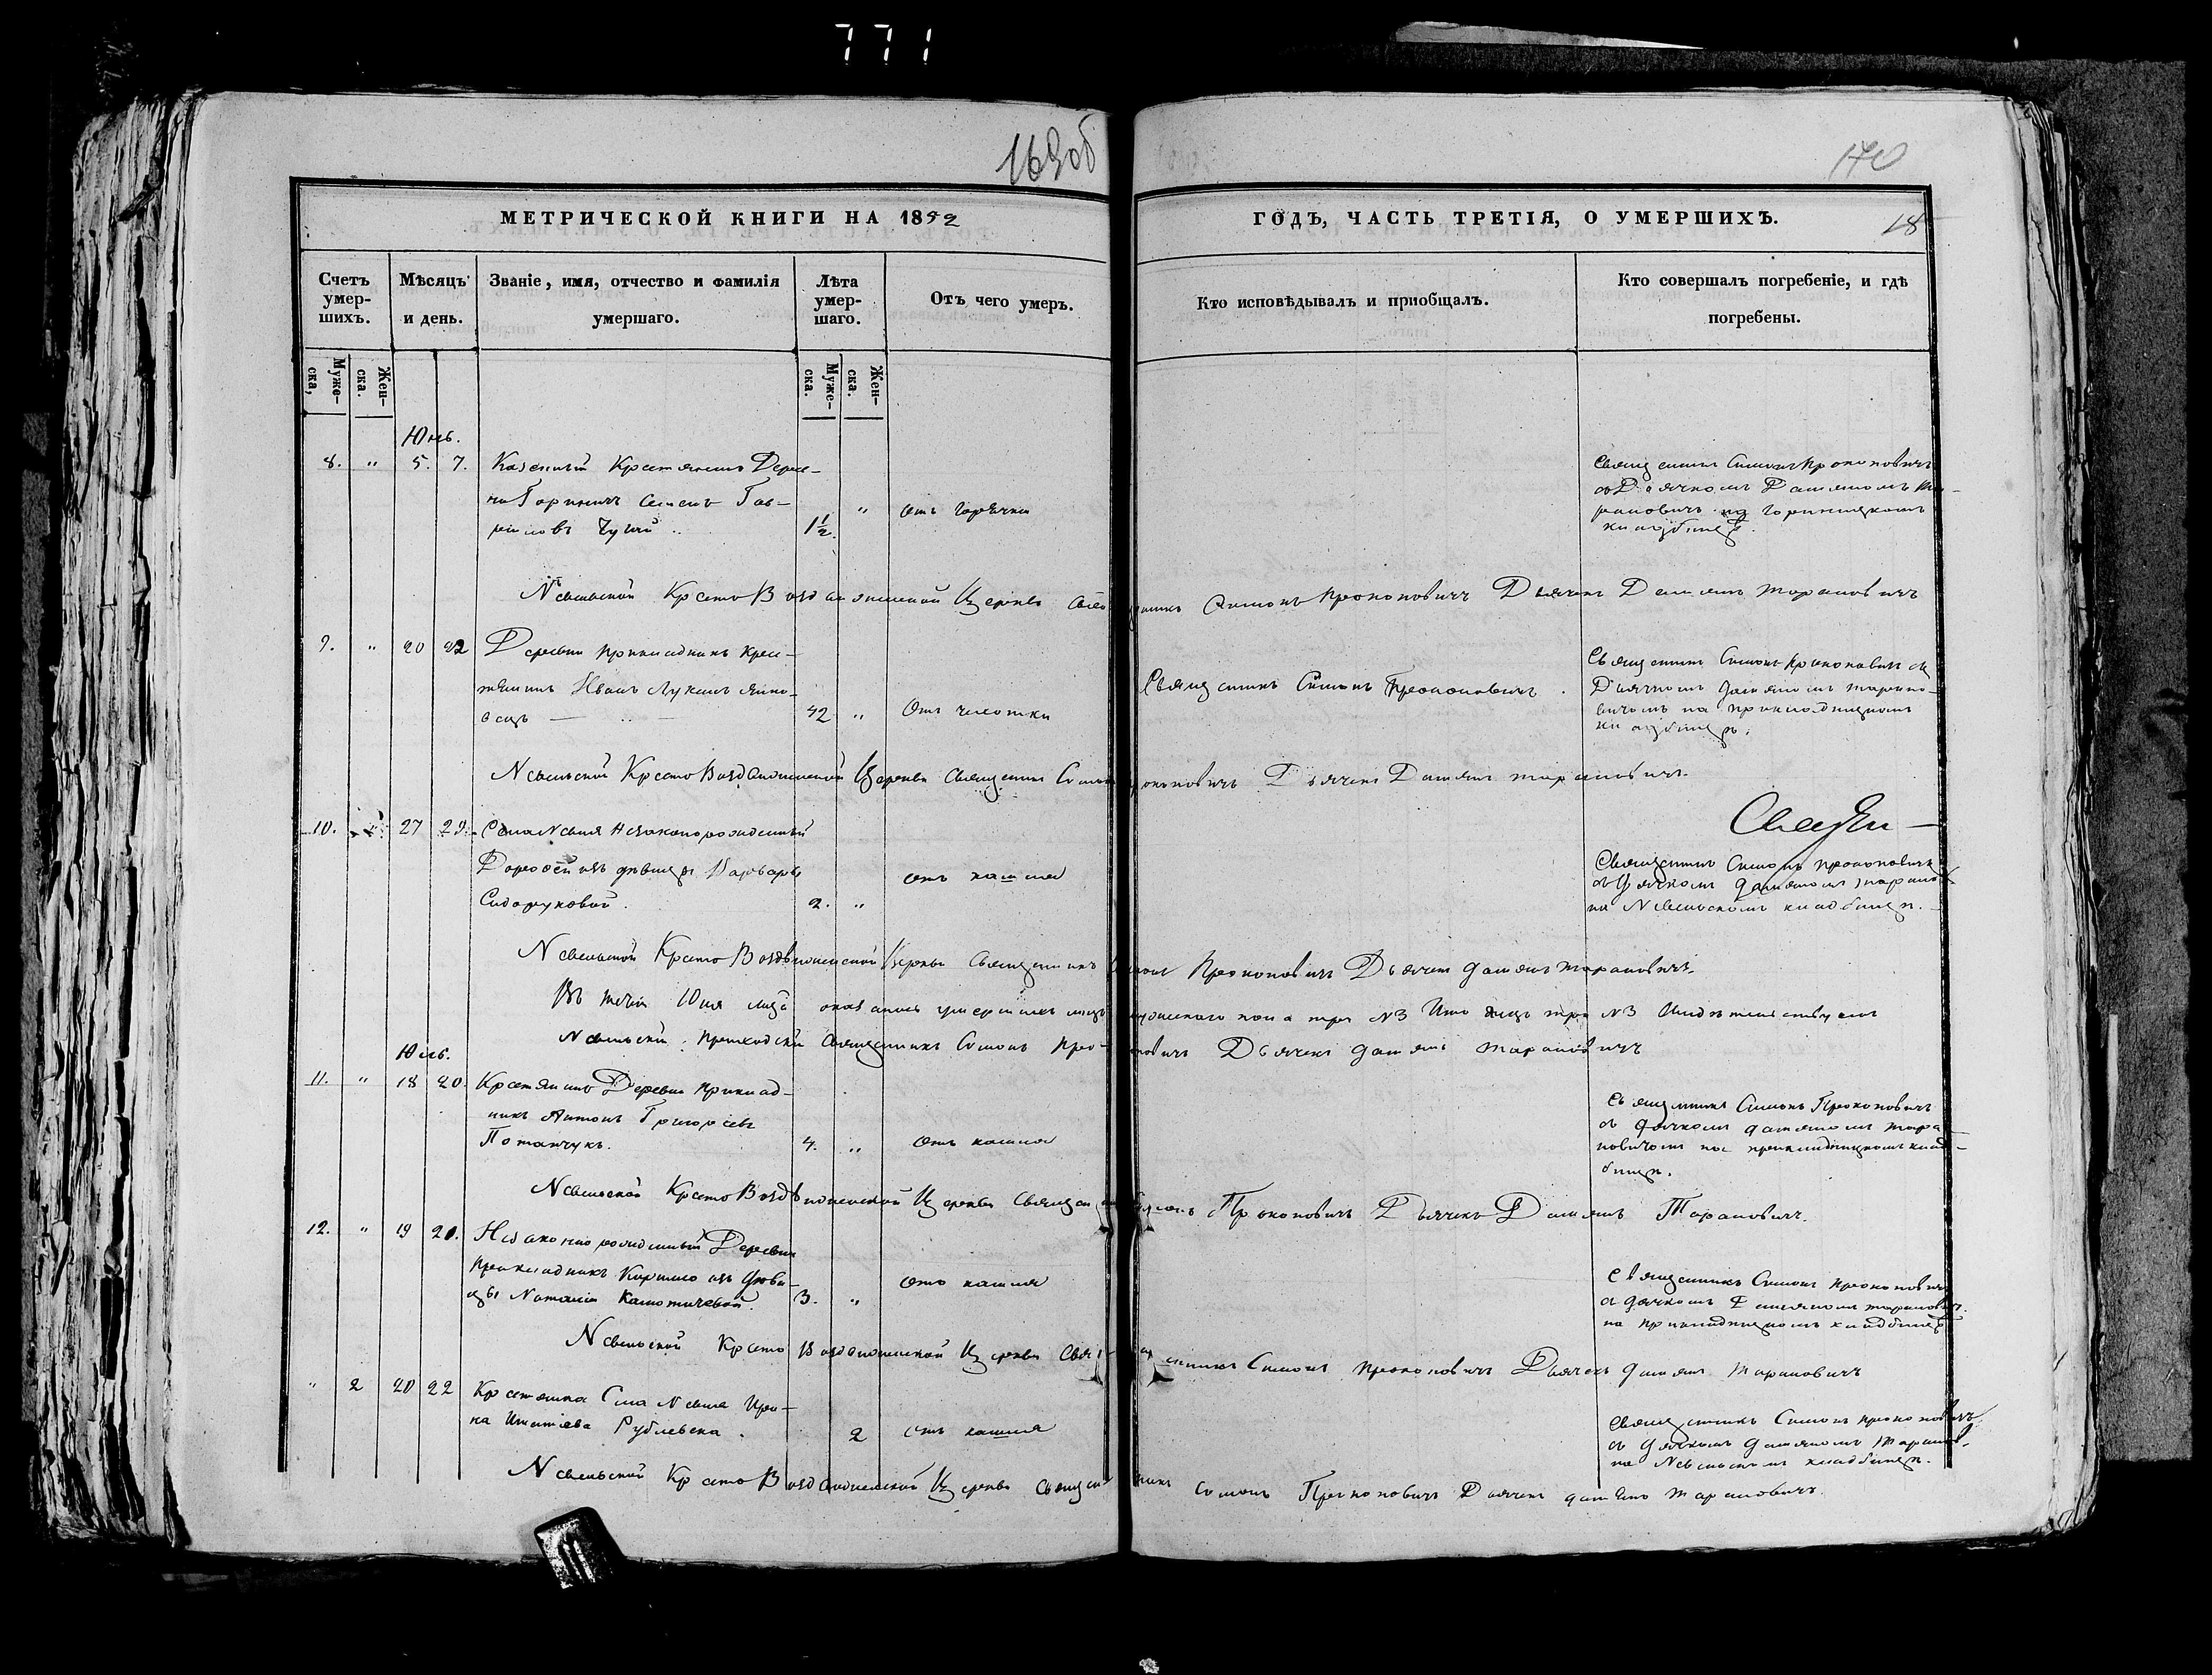 771
169об
170
МЕТРИЧЕСКОЙ КНИГИ НА 1852
ГОДЪ, ЧАСТЬ ТРЕТІЯ, О УМЕРШИХЪ.
18
Счетъ умер-шихъ.
Мѣсяцъ и день.
Званіе, имя, отчество и фамилія умершаго.
Лѣта умер-шаго.
Отъ чего умеръ.
Кто исповѣдывалъ и пріобщалъ.
Кто совершалъ погребеніе, и гдѣ погребены.
Муже-ска,
Жен-ска.
Муже-ска.
Жен-ска.
Юнь.
8. " 5. 7. Казенный Крестянинъ Дерев-
ни Гориничъ Семенъ Гав-
риловъ 1½ " отъ горячки
Священникъ Симонъ Прокоповичъ
съ Дячкомъ Дамяномъ Та-
рановичъ на Гориницкомъ
кладбищѣ.
Невельской Кресто Воздвиженской Церкви Священникъ Симонъ Прокоповичъ Дьячекъ Дамянъ Тарановичъ
9. " 20 22 Деревни Прикладникъ Крес-
тянинъ Иванъ Лукинъ
42 " Отъ чахотки
Священникъ Симонъ Прокоповичъ.
Священникъ Симонъ Прокоповичъ съ
Дьячкомъ Дамяномъ Тарано-
вичомъ на Прикладницкомъ
кладбищѣ.
Невельской Кресто Воздвиженской Церкви Священникъ Симонъ Прокоповичъ Дьячекъ Дамянъ Тарановичъ.
10. 27 29. Села Невля Незаконорожденный
Дорофей изъ дѣвицы Варвары
Сидоруковой. 2. " отъ кашля
Священникъ Симонъ Прокоповичъ
съ Дячкомъ Дамяномъ Таранов
на Невельскомъ кладбищѣ.
Невельской Кресто Воздвиженской Церкви Священникъ Симонъ Прокоповичъ Дьячекъ Дамянъ Тарановичъ.
Въ Юня оказалось умершихъ мужескаго пола три №3 три №3
Невельскій Приходскій Священникъ Симонъ Прокоповичъ Дьячекъ Дамянъ Тарановичъ
Юль.
11. " 18 20. Крестянинъ Деревни Приклад-
никъ Антонъ Григорьевъ
Потапчукъ. 4. " отъ кашля
Священникъ Симонъ Прокоповичъ
съ Дячкомъ Дамяномъ Тара-
новичомъ на Прикладницкомъ клад-
бищѣ.
Невельской Кресто Воздвиженской Церкви Священникъ Симонъ Прокоповичъ Дьячекъ Дамянъ Тарановичъ.
12. " 19 21. Незаконнорожденный Деревни
Прикладникъ Кирило изъ дѣви-
цы Наталіи 3. " отъ кашля
Священникъ Симонъ Прокоповичъ
съ Дячкомъ Дамяномъ Таранович.
на Прикладницкомъ кладбищѣ
Невельской Кресто Воздвиженской Церкви Священникъ Симонъ Прокоповичъ Дьячекъ Дамянъ Тарановичъ
" 2 20 22 Крестянка Села Невля Ири-
на Игнатіева Рублевска. 2 отъ кашля
Священникъ Симонъ Прокоповичъ
съ Дячкомъ Дамяномъ Таранов.
на Невельскомъ кладбищѣ.
Невельской Кресто Воздвиженской Церкви Священникъ Симонъ Прокоповичъ Дьячекъ Дамянъ Тарановичъ.